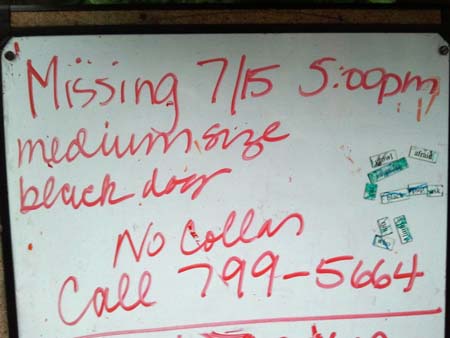 Missing 7/15 5:00pm
medium size
black dog
No Collar
Call 799-5664
afraid